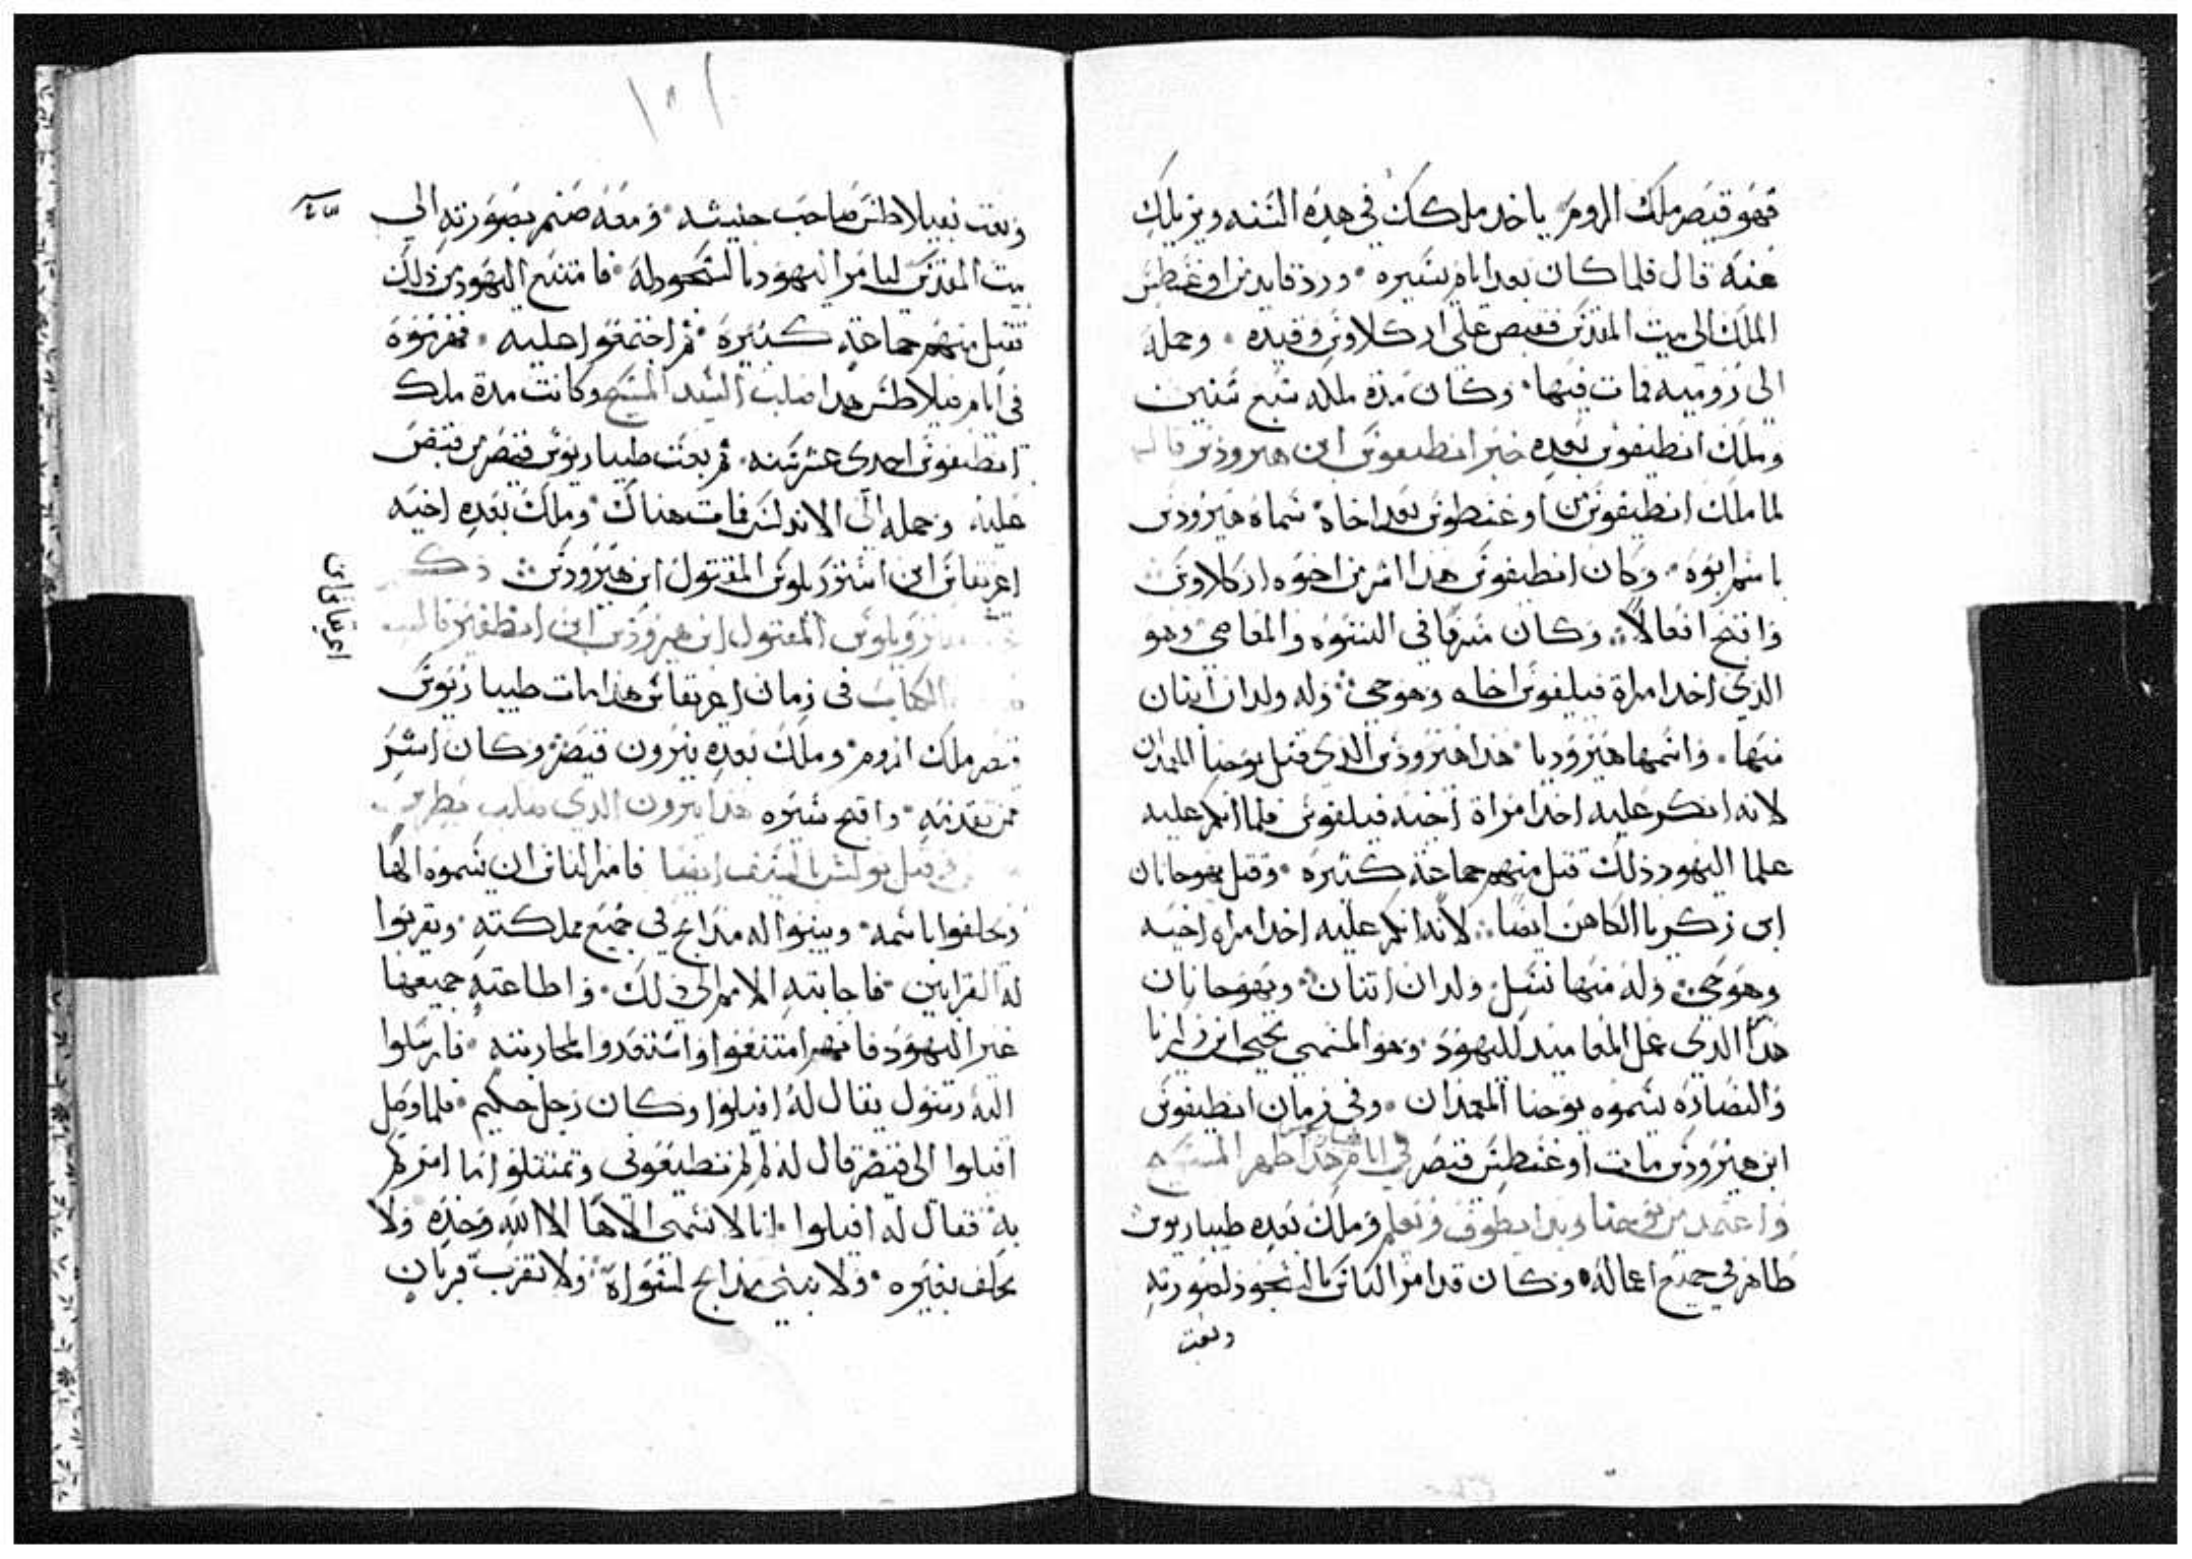 فهو قيصر ملك الروم ياخد ملكك في هده السنه ويزيلك
عنه قال فلما كان بعد ايام يسيره ورد قايد من اوغسطس
الملك الى بيت المقدس فقبص على اركلاوس وقيده وحمله
الى روميه فمات فيها وكان مدة ملكه سبع سنين
وملك انطيفوس بعده خبر انطيفوس ابن هيرودس قال
لما ملك انطيفوس من اوغسطوس بعد اخاه سماه هيرودس
باسم ابوه وكان انطيفوس هدا اشر من اخوه اركلاوس
واقبح افعالا وكان مسرفا في الفسوه والمعاصي وهو
الدي اخد امراة فيلفوس اخاه وهو حي وله ولدان اتنان
منها واسمها هيروديا هدا هيرودس الدي قتل يوحنا المعمدان
لانه انكر عليه اخد امراة اخيه فيلفوس فلما انكر عليه
علما اليهود دلك قتل منهم جماعة كتيره وقتل يهوحانان
ابن زكريا الكاهن ايضا لانه انكر عليه اخد امراه اخيه
وهو حي وله منها نسل ولدان اتنان ويهوحانان
هدا الدي عمل المعاميد لليهود وهو المسمى يحيى ابن زكريا
والنصاره يسموه يوحنا المعمدان وفي زمان انطيفوس
ابن هيرودس مات اوغسطس قيصر في ايام هدا ظهر المسيح
واعتمد من يوحنا وبدا يطوف ويعلم وملك بعده طيباريوس
ظاهر في جميع اعماله وكان قد امر الناس بالسجود لصورته
وبعت
وبعت بفيلاطس صاحب جيشه ومعه صنم بصورته الى
بيت المقدس ليامر اليهود بالسجود له فامتنع اليهود من دلك
فقتل منهم جماعة كتيرة ثم اجتمعوا عليه فهزموه
في ايام فيلاطس هدا صلب السيد المسيح وكانت مدة ملك
انطيفوس احدى عشر سنه ثم بعت طيباريوس قيصر من قبض
عليه وحمله الى الاندلس فمات هناك وملك بعده اخيه
اغريفاس ابن استوربلوس المقتول ابن هيرودس دكر
المقتول ابن هيرودس ابن انطفير قال
الكاتب في زمان اغريفاس هدا مات طيباريوس
قيصر ملك الروم وملك بعده نيرون قيصر وكان اشر
ممن تقدمه واقبح سيره هدا نيرون الدي صلب بطرس
قتل بولس بالسيف ايضا فامر الناس ان يسموه الها
ويحلفوا باسمه ويبنوا له مدابح في جميع مملكته ويقربوا
له القرابين فاجابته الامم الى دلك واطاعته جميعها
غير اليهود فانهم امتنعوا واستعدوا لمحاربته فارسلوا
اليه رسول يقال له افيلوا وكان رجل حكيم فلما وصل
افيلوا الى قيصر قال له لم لم تطيعوني وتمتتلوا ما امرتكم
به فقال له افيلوا انا لا نسمي الاها الا الله وحده ولا
نحلف بغيره ولا نبني مدابح لسواه ولا نقرب قربان
اغريفاس ابن